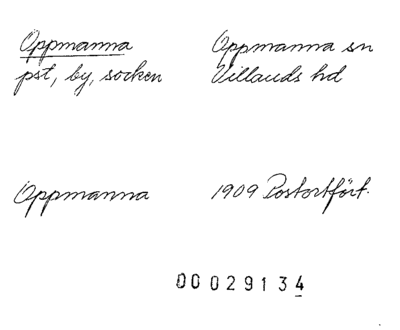 Oppmanna
pst, by, socken
Oppmanna sn
Villands hd
Oppmanna
1909 Postortfört.
00029134